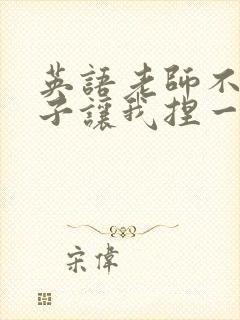 英語老師不
子讓我捏一
宋偉